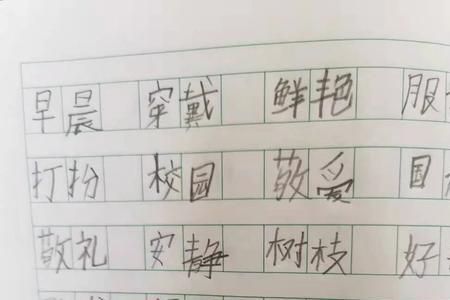 早晨 穿戴 鲜艳 服
打扮 校园 敬爱 国
敬礼 安静 树枝 好